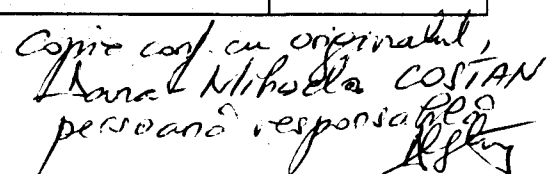 Copie conf cu originalul,
Mihaela COSTAN
persoană responsabilă